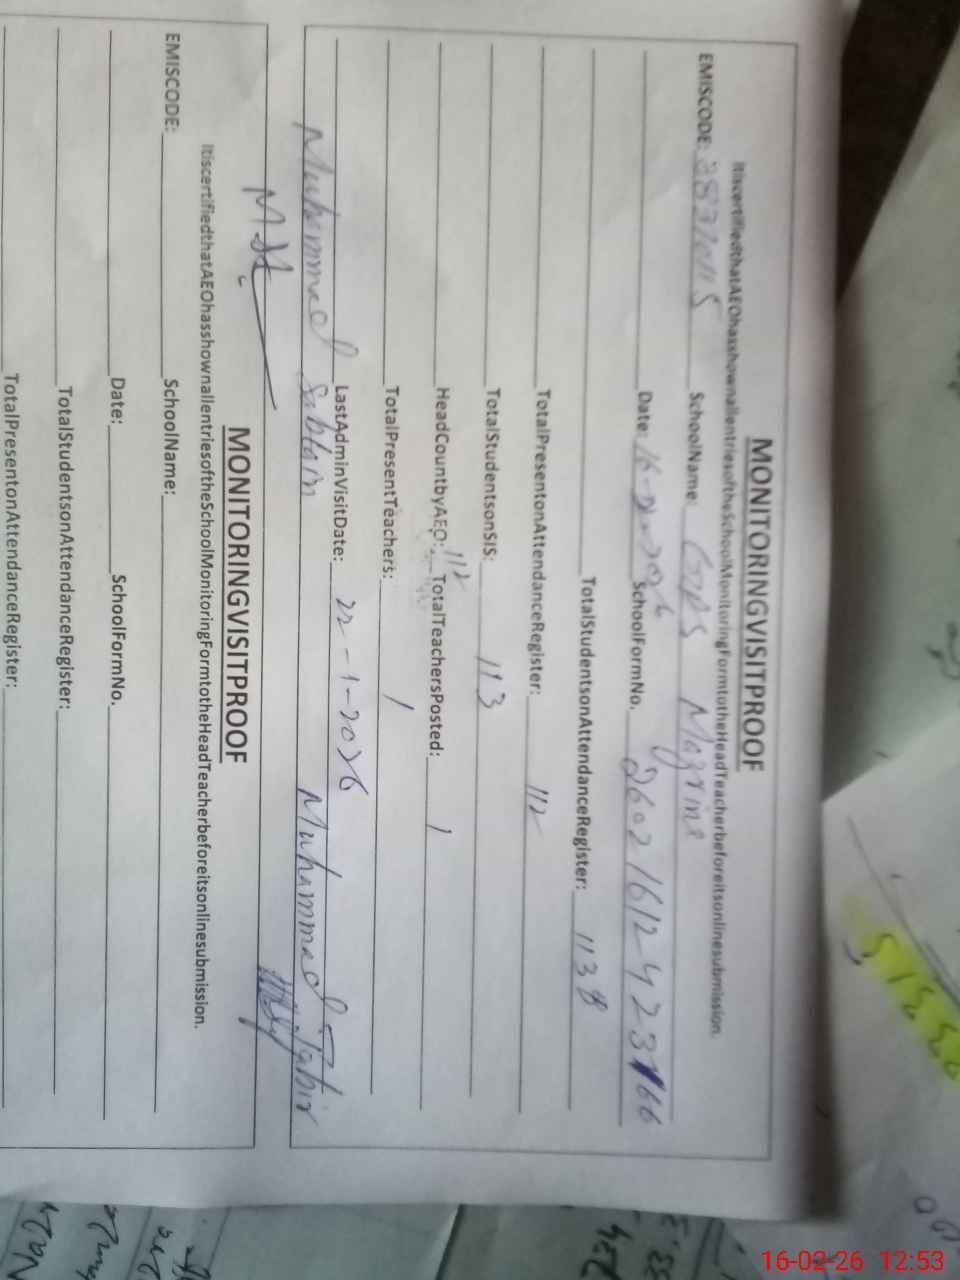 MONITORINGVISITPROOF
ItiscertifiedthatAEOhasshownallentriesoftheSchoolMonitoringFormtotheHeadTeacherbeforeitsonlinesubmission.
EMISCODE: SchoolName: GPS
Date: SchoolFormNo.
TotalStudentsonAttendanceRegister: 113
TotalPresentonAttendanceRegister: 112
TotalStudentsonSIS: 113
HeadCountbyAEO: 112 TotalTeachersPosted: 1
TotalPresentTeachers: 1
LastAdminVisitDate: 22-1-2026
Muhammad Sabtain Muhammad Jabir
MONITORINGVISITPROOF
ItiscertifiedthatAEOhasshownallentriesoftheSchoolMonitoringFormtotheHeadTeacherbeforeitsonlinesubmission.
EMISCODE: SchoolName:
Date: SchoolFormNo.
TotalStudentsonAttendanceRegister:
TotalPresentonAttendanceRegister:
16-02-26 12:53